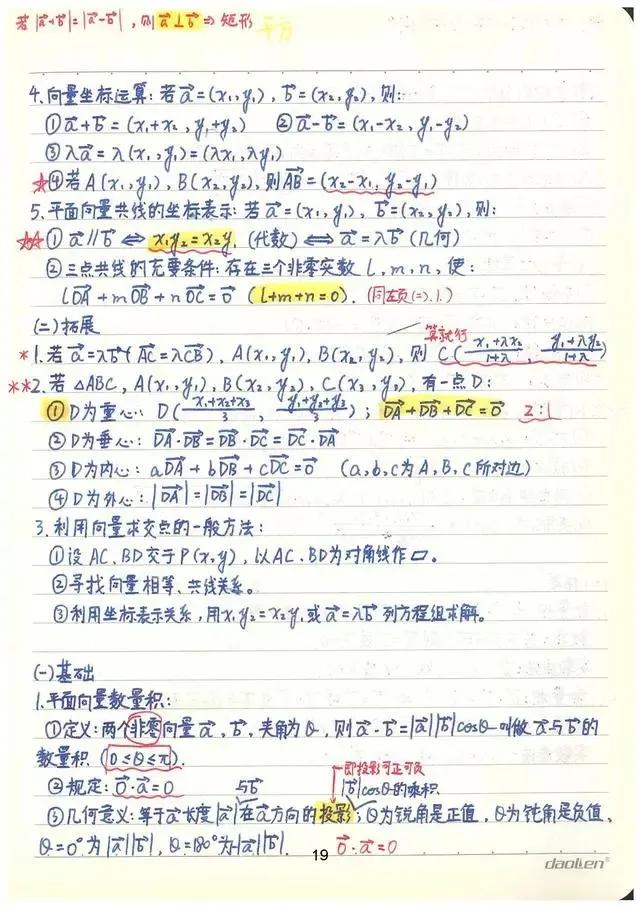 若|a⃗+b⃗|=|a⃗-b⃗|,则a⃗⊥b⃗⇒矩形 平方
4.向量坐标运算:若a⃗=(x₁,y₁),b⃗=(x₂,y₂),则:
①a⃗+b⃗=(x₁+x₂,y₁+y₂) ②a⃗-b⃗=(x₁-x₂,y₁-y₂)
③λa⃗=λ(x₁,y₁)=(λx₁,λy₁)
☆④若A(x₁,y₁),B(x₂,y₂),则AB⃗=(x₂-x₁,y₂-y₁)
5.平面向量共线的坐标表示:若a⃗=(x₁,y₁),b⃗=(x₂,y₂),则:
☆☆①a⃗∥b⃗⇔x₁y₂=x₂y₁(代数)⇔a⃗=λb⃗(几何)
②三点共线的充要条件:存在三个非零实数l,m,n,使:
lDA⃗+mOB⃗+nOC⃗=0⃗(l+m+n=0).(同左页(二).1.)
(二)拓展
算就行
*1.若a⃗=λb⃗(AC⃗=λCB⃗),A(x₁,y₁),B(x₂,y₂),则C((x₁+λx₂)/(1+λ),(y₁+λy₂)/(1+λ))
**2.若△ABC,A(x₁,y₁),B(x₂,y₂),C(x₃,y₃),有一点D:
①D为重心:D((x₁+x₂+x₃)/3,(y₁+y₂+y₃)/3);DA⃗+DB⃗+DC⃗=0⃗ 2:1
②D为垂心:DA⃗·DB⃗=DB⃗·DC⃗=DC⃗·DA⃗
③D为内心:aDA⃗+bDB⃗+cDC⃗=0⃗ (a,b,c为A,B,C所对边)
④D为外心:|DA⃗|=|DB⃗|=|DC⃗|
3.利用向量求交点的一般方法:
①设AC、BD交于P(x,y),以AC、BD为对角线作▱。
②寻找向量相等、共线关系。
③利用坐标表示关系,用x₁y₂=x₂y₁或a⃗=λb⃗列方程组求解。
(一)基础
1.平面向量数量积:
①定义:两个非零向量a⃗,b⃗,夹角为θ,则a⃗·b⃗=|a⃗||b⃗|cosθ叫做a⃗与b⃗的
数量积(0≤θ≤π).
即投影可正可负
②规定:0⃗·a⃗=0 与b⃗ |b⃗|cosθ的乘积.
③几何意义:等于a⃗长度|a⃗|在a⃗方向的投影;θ为锐角是正值,θ为钝角是负值、
θ=0°为|a⃗||b⃗|,θ=180°为-|a⃗||b⃗|. 0⃗·a⃗=0
19
daolen